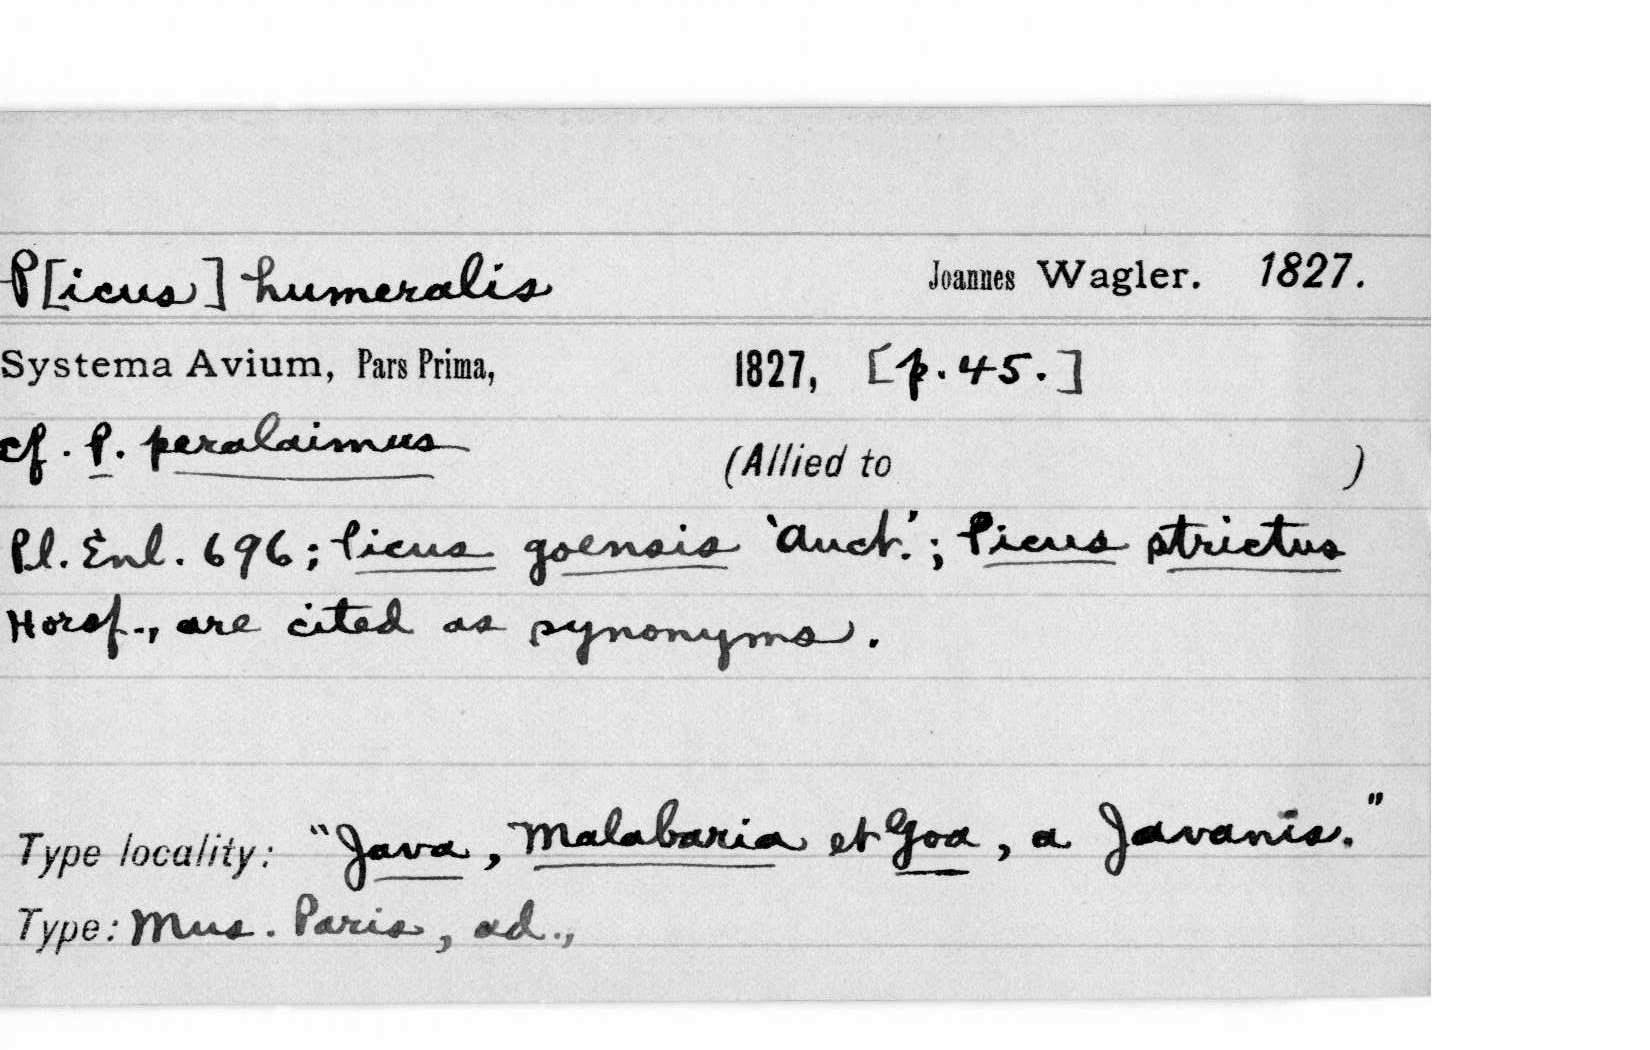 P[icus] humeralis Joannes Wagler. 1827.
Systema Avium, Pars Prima, 1827, [p. 45.]
cf. P. peralaimus (Allied to )
Pl. Enl. 696; Picus goensis 'Auct.'; Picus strictus
Horsf., are cited as synonyms.
Type locality: "Java, Malabaria et Goa, a Javanis."
Type: Mus. Paris, ad.,